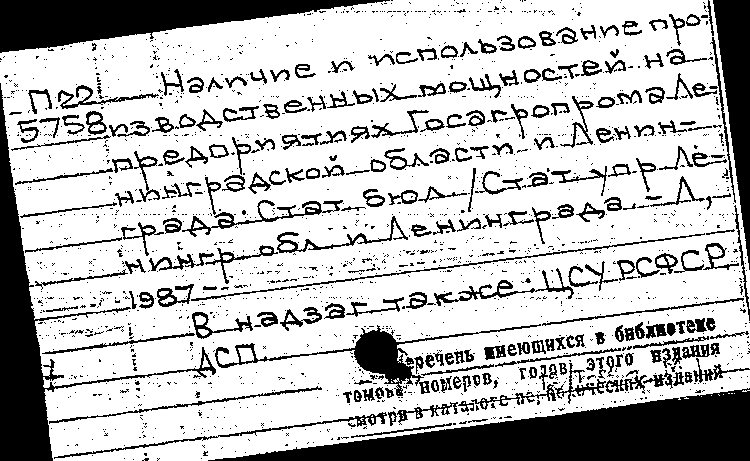 П22 Наличие и использование про-
5758 изводственных мощностей на
предприятиях Госагропрома Ле-
нинградской области и Ленин-
града: Стат. бюл. / Стат. упр. Ле-
нингр. обл. и Ленинграда. - Л.,
1987 -.
В надзаг. также: ЦСУ РСФСР.
ДСП.
Перечень имеющихся в библиотеке
томов, номеров, годов этого издания
смотри в каталоге периодических изданий